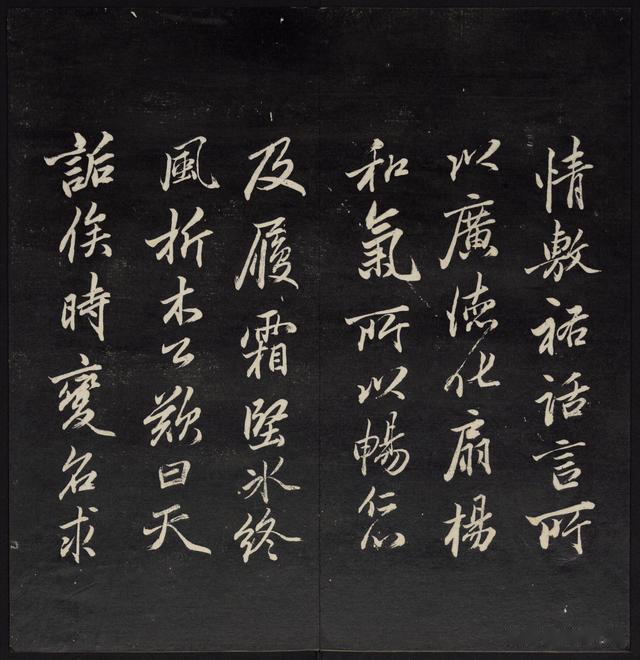 情敷祐話言所
以廣徳化扇楊
和氣所以暢仁心
及履霜堅冰終
風折木公歎曰天
詬俟時變名求